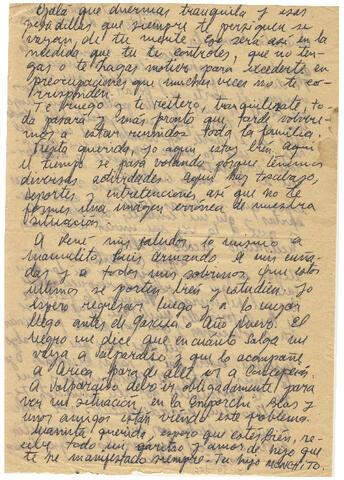 Ojalá que duermas tranquila y esas
pesadillas que siempre te persiguen se
vayan de tu mente. Eso será así en la
medida que tu te controles, que no ten-
gas o te hagas motivos para excederte en
preocupaciones que muchas veces no te co-
rresponden.
Te ruego y te reitero, tranquilízate, to-
do pasará y más pronto que tarde volvere-
mos a estar reunidos toda la familia.
querida, yo aquí estoy bien, aquí
el tiempo se pasa volando porque tenemos
diversas actividades aquí hay trabajo,
deportes y entretenciones, así que no te
formes una imagen errónea de nuestra
situación.
A René mis saludos lo mismo a
Manuelito, Luis Armando a mis cuña-
das y a todos mis sobrinos, que estos
últimos se porten bien y estudien. Yo
espero regresar luego y a lo mejor
llego antes de Pascua o Año Nuevo. El
negro me dice que en cuanto salga me
vaya a Valparaíso y que lo acompañe
a Arica para de allí ir a Concepción.
A Valparaíso debo ir obligadamente para
ver mi situación, en la Emporchi. Blas y
unos amigos están viendo este problema.
Mamita querida, espero que estés bien, re-
cibe todo un cariño y amor de hijo que
te he manifestado siempre - Tu hijo MONCHITO.